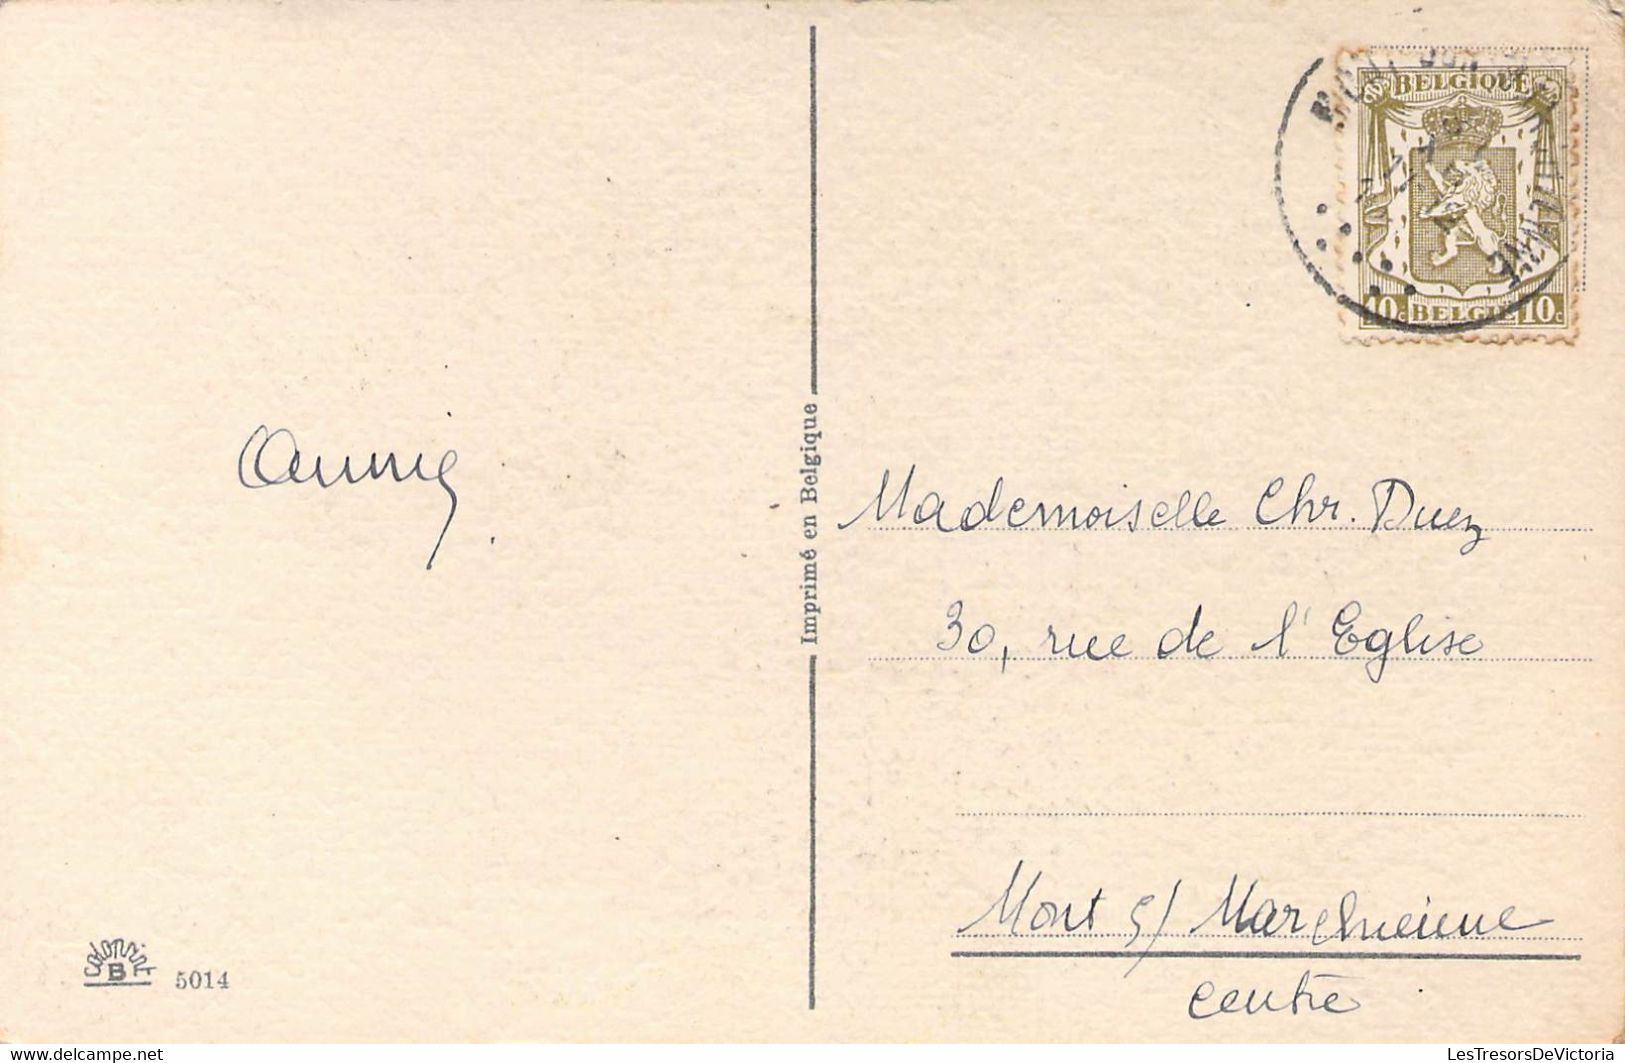 Annie
Imprimé en Belgique
BELGIQUE
10c BELGIE 10c
Mademoiselle Chr. Duez
30, rue de l'Eglise
Mont s/ Marchienne
centre
colorprint
B
5014
https://www.delcampe.net
LesTresorsDeVictoria